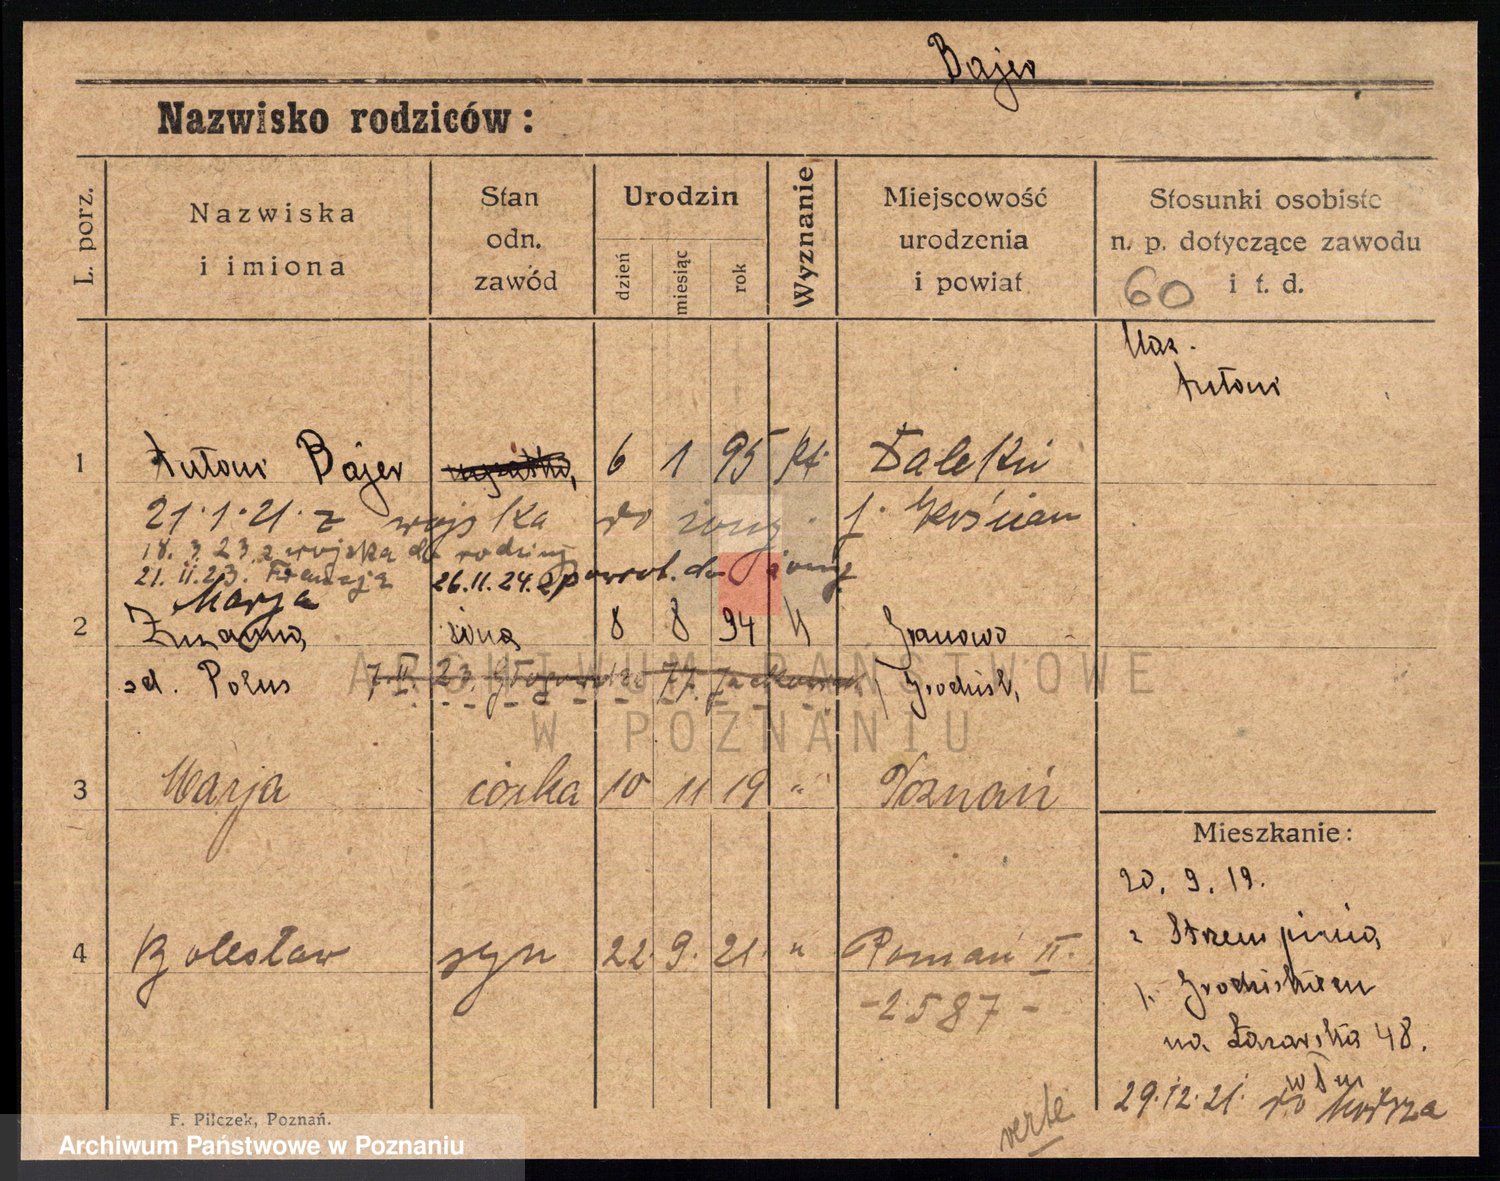 Bajer
Nazwisko rodziców:
L. porz.
Nazwiska
i imiona
Stan
odn.
zawód
Urodzin
dzień
miesiąc
rok
Wyznanie
Miejscowość
urodzenia
i powiat
Stosunki osobiste
n. p. dotyczące zawodu
60 i t. d.
Antoni
1 Antoni Bajer 6 1 95 kt. Daleki
21.1.21. z wojska do żony. p. Kościan
18. 3. 23. z wojska do rodziny
21. 11. 23. Francja 26.11.24. z powrot. do żony
Marja
2 Zuzanna żona 8 8 94 " Granowo
zd. Polus 7.II.23. Głogowska 77. p. Grodzisk
ARCHIWUM PAŃSTWOWE
W POZNANIU
3 Marja córka 10 11 19 " Poznań
4 Bolesław syn 22. 9. 21. " Poznań II.
- 2587 -
Mieszkanie:
20. 9. 19.
z Strzempinia,
p. Grodziskiem
na Łazarska 48.
29.12.21. do
verte
F. Pilczek, Poznań.
Archiwum Państwowe w Poznaniu